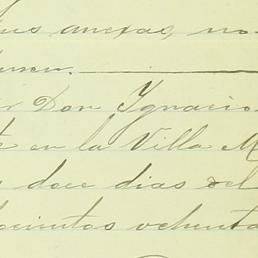 sus anexas, no
lumen.
or Don Ygnacio
te en la Villa M
s doce dias del
ocientos ochenta